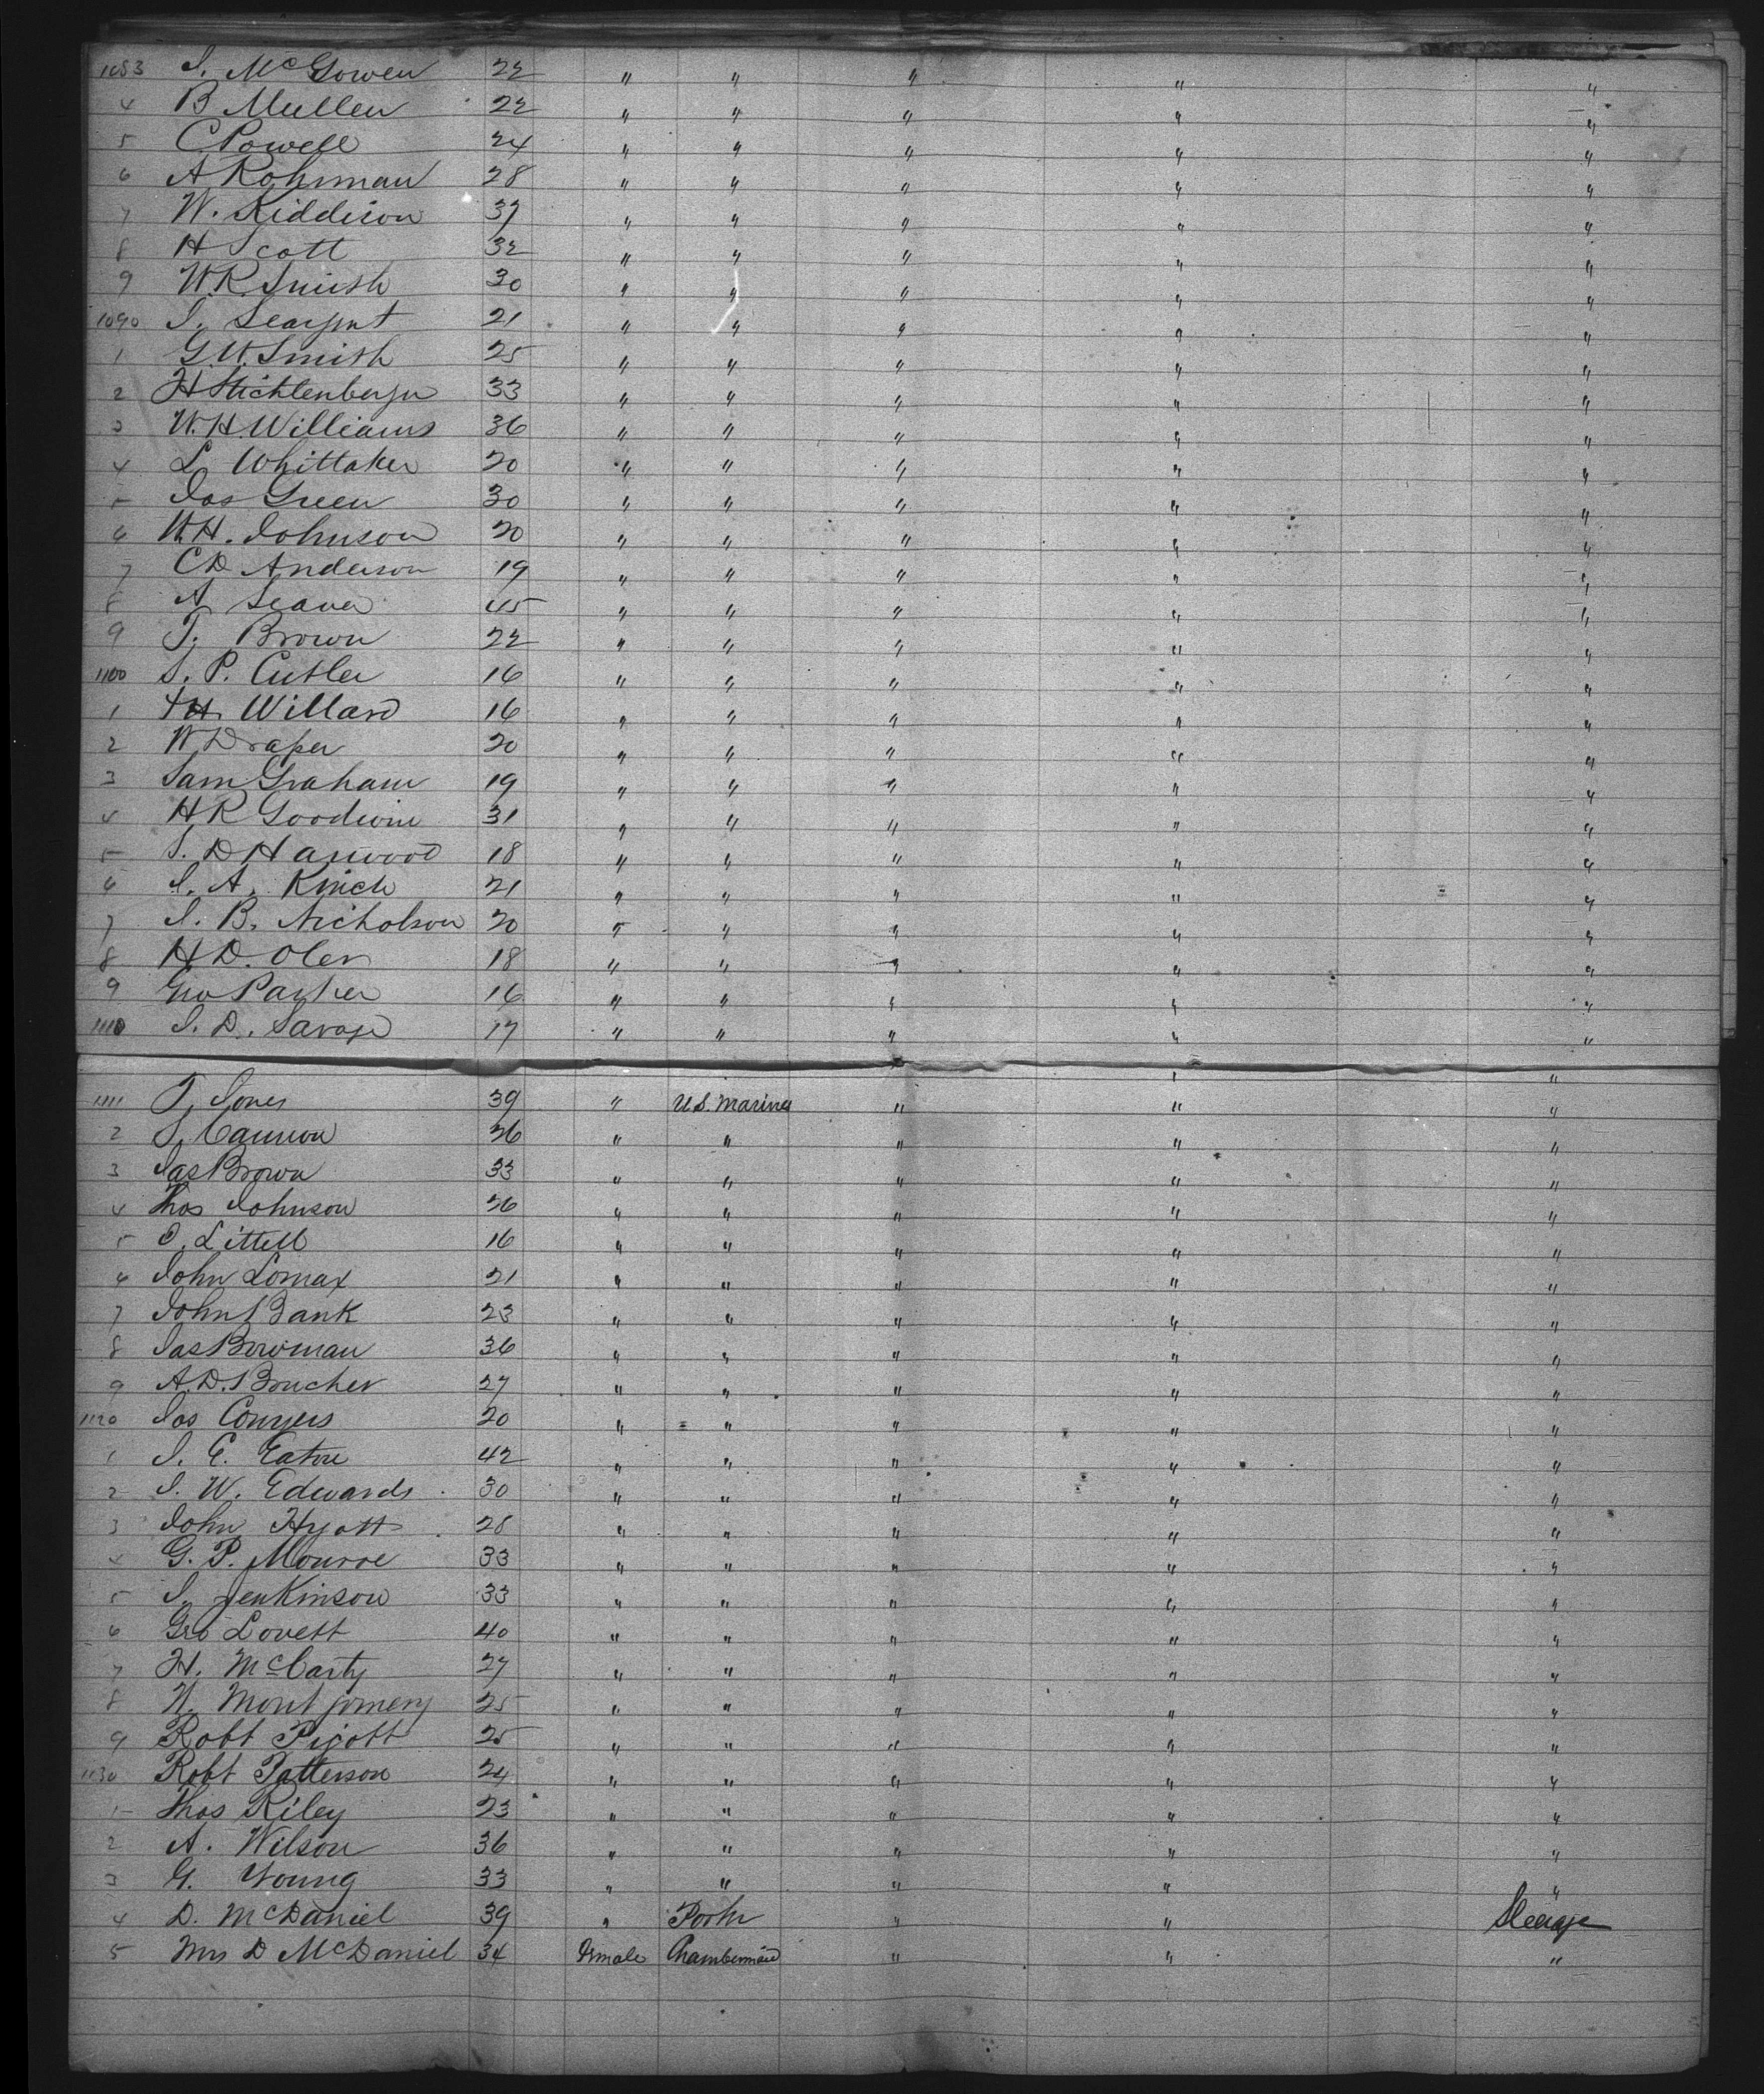 1083 J. McGowen 22 " " " " "
4 B Mullen 22 " " " " "
5 C Powell 24 " " " " "
6 A Rohrman 28 " " " " "
7 W. Kiddison 37 " " " " "
8 H Scott 32 " " " " "
9 W.R. Smith 30 " " " " "
1090 J. 21 " " " " "
1 G.W. Smith 25 " " " " "
2 H Stichtenberger 33 " " " " "
3 W.H. Williams 36 " " " " "
4 L Whittaker 20 " " " " "
5 Jas Green 30 " " " " "
6 W.H. Johnson 20 " " " " "
7 CD Anderson 19 " " " " "
8 A Seaver 45 " " " " "
9 T. Brown 22 " " " " "
1100 S. P. Cutler 16 " " " " "
1 Willard 16 " " " " "
2 W Draper 20 " " " " "
3 Sam Graham 19 " " " " "
4 H R Goodwin 31 " " " " "
5 S. D Harwood 18 " " " " "
6 J. A. Kinch 21 " " " " "
7 J. B. Nicholson 20 " " " " "
8 H D. Oler 18 " " " " "
9 Geo Parker 16 " " " " "
1110 J. D. Savage 17 " " " " "
1111 T. Jones 39 " U.S. Marines " " "
2 Cannon 26 " " " " "
3 Jas Brown 33 " " " " "
4 Thos Johnson 26 " " " " "
5 C. Littell 16 " " " " "
6 John Lomax 21 " " " " "
7 John Bank 23 " " " " "
8 Jas Bowman 36 " " " " "
9 A.D. Brucher 27 " " " " "
1120 Jos Conyers 20 " " " " "
1 J. E. Eaton 42 " " " " "
2 J. W. Edwards 30 " " " " "
3 John Hyatt 28 " " " " "
4 G. P. Monroe 33 " " " " "
5 J. Jenkinson 33 " " " " "
6 Geo Lovett 40 " " " " "
7 H. McCarty 27 " " " " "
8 W. Montgomery 25 " " " " "
9 Robt Pigott 25 " " " " "
1130 Robt Patterson 24 " " " " "
1 Thos Riley 23 " " " " "
2 A. Wilson 36 " " " " "
3 G. Young 33 " " " " "
4 D. McDaniel 39 " Porter " " Steerage
5 Mrs D McDaniel 34 Female Chambermaid " " "